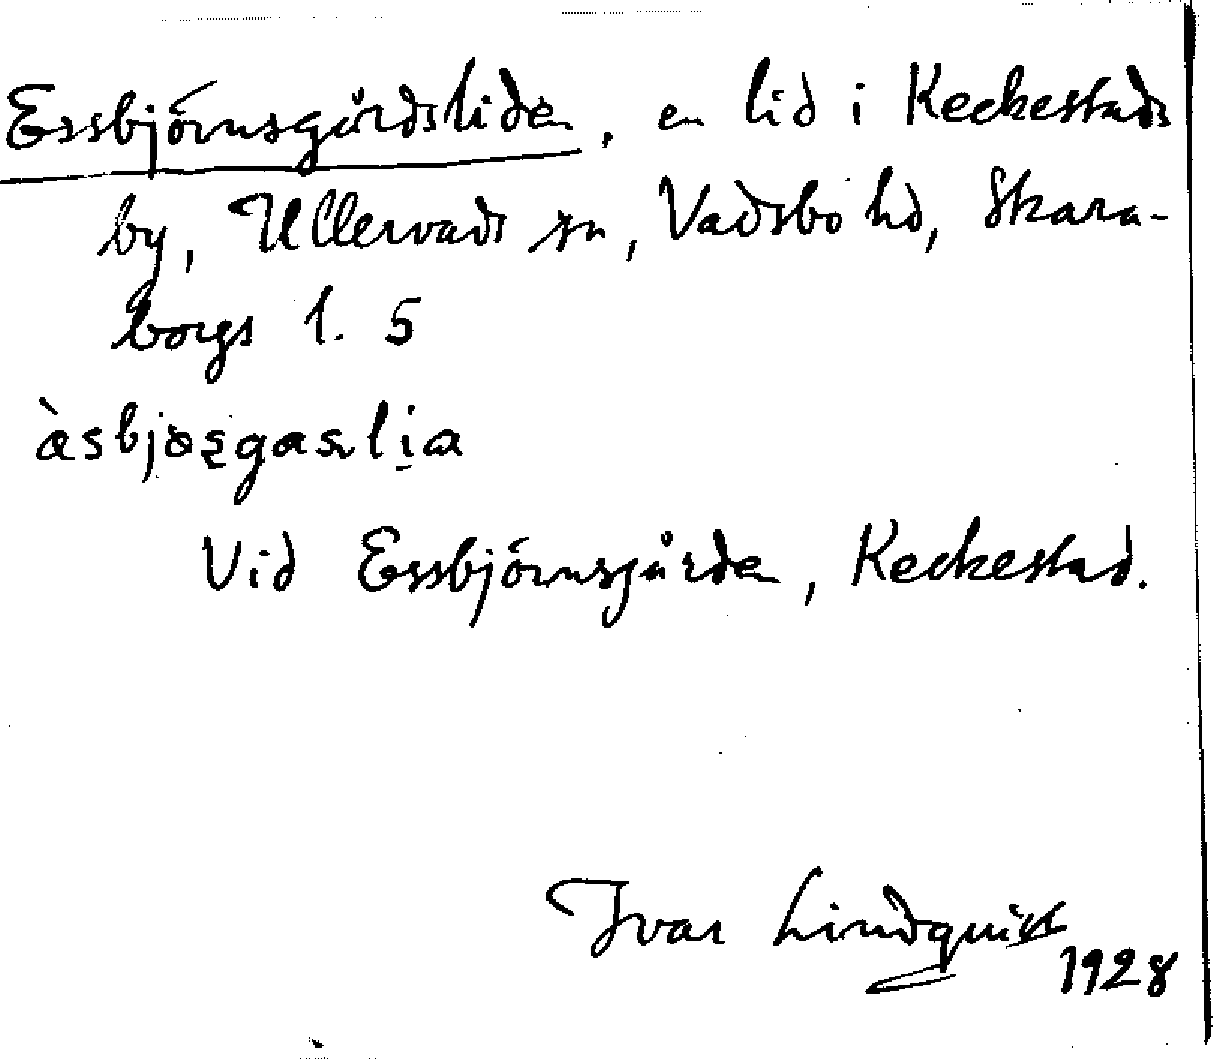 Essbjörnsgårdsliden, en lid i Keckestads
by, Ullervads sn, Vadsbo hd, Skara-
borgs l. 5
Vid Essbjörnsgården, Keckestad.
Ivar Lindquist
1928